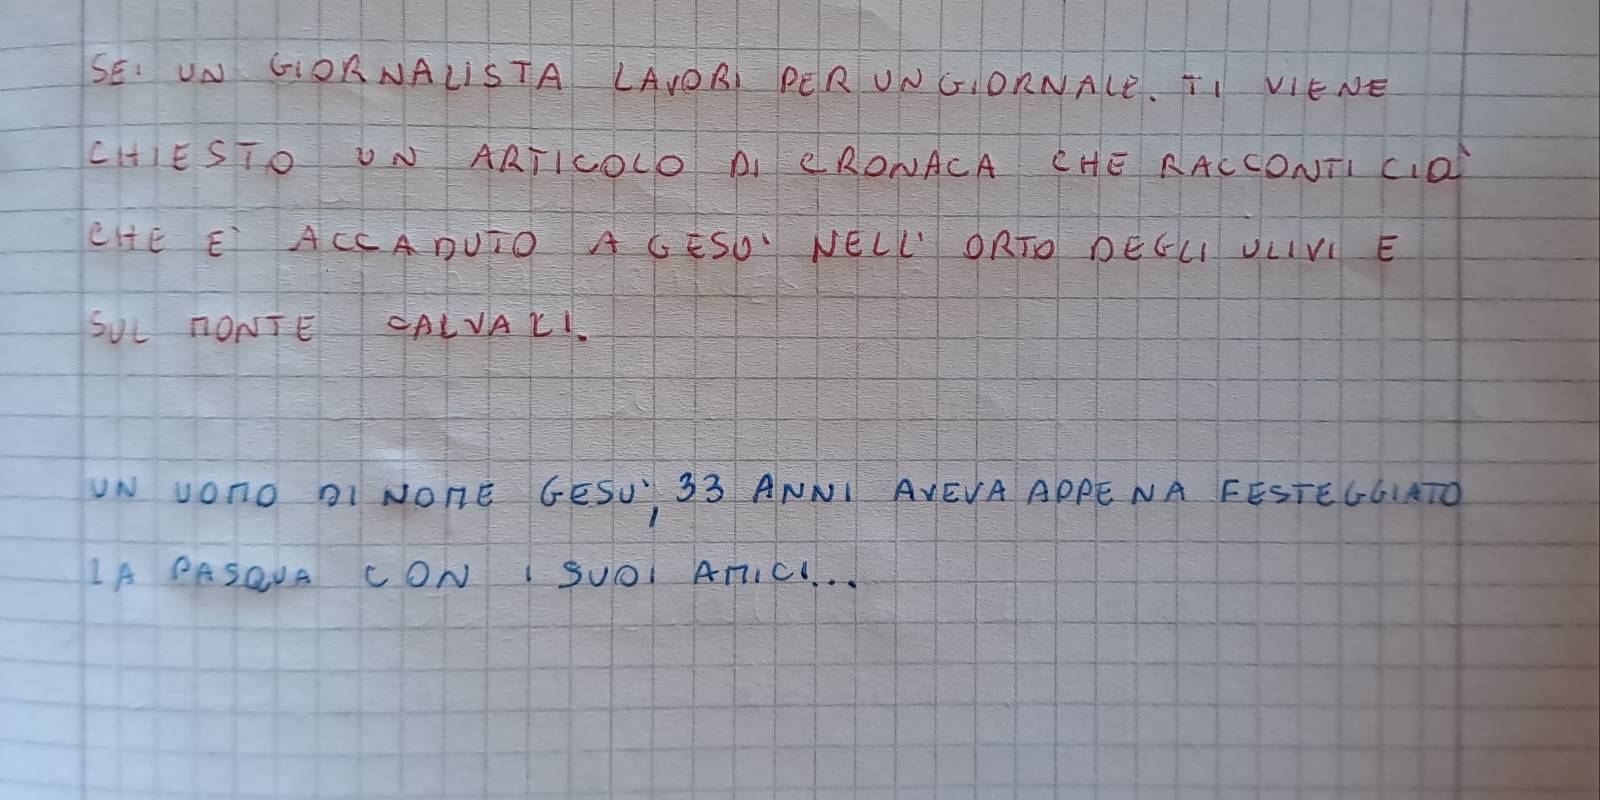 SEI UN GIORNALISTA LAVORI PER UN GIORNALE. TI VIENE
CHIESTO UN ARTICOLO DI CRONACA CHE RACCONTI CIO'
CHE E' ACCADUTO A GESU' NELL' ORTO DEGLI ULIVI E
SUL MONTE CALVARI.
UN UOMO DI NOME GESU', 33 ANNI AVEVA APPENA FESTEGGIATO
LA PASQUA CON I SUOI AMICI...